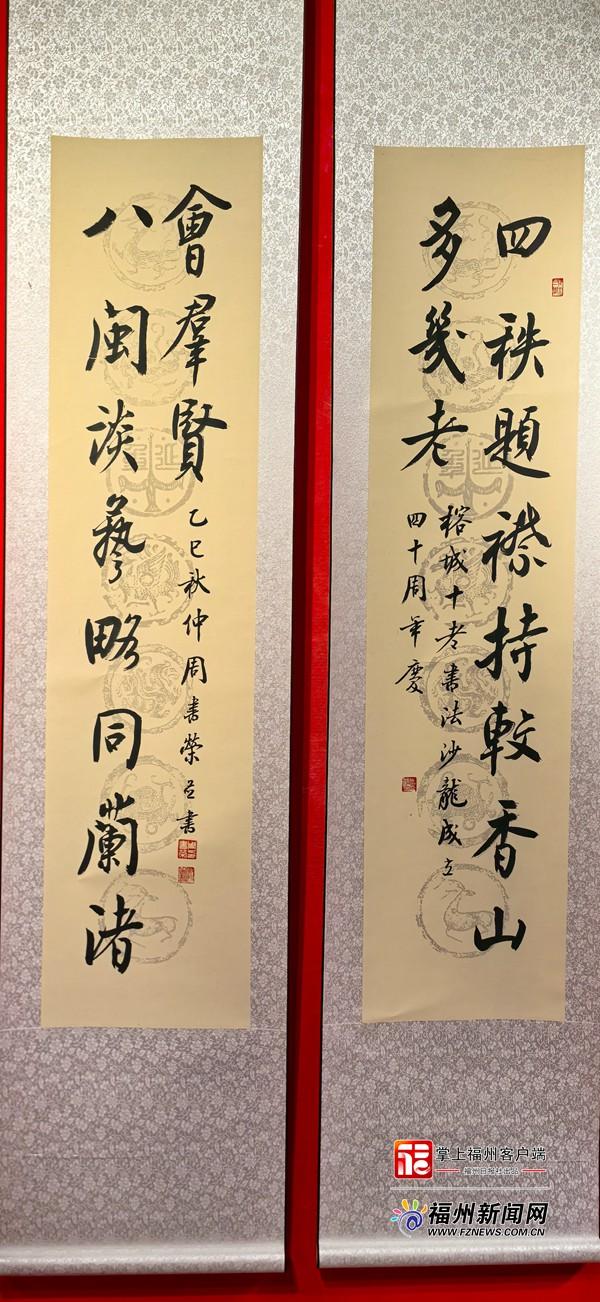 四秩題襟持較香山
多幾老
榕城十老書法沙龍成立
四十周年慶
八閩談藝略同蘭渚
會羣賢
乙巳秋仲周書榮並書
掌上福州客户端
福州日报社出品
福州新闻网
WWW.FZNEWS.COM.CN